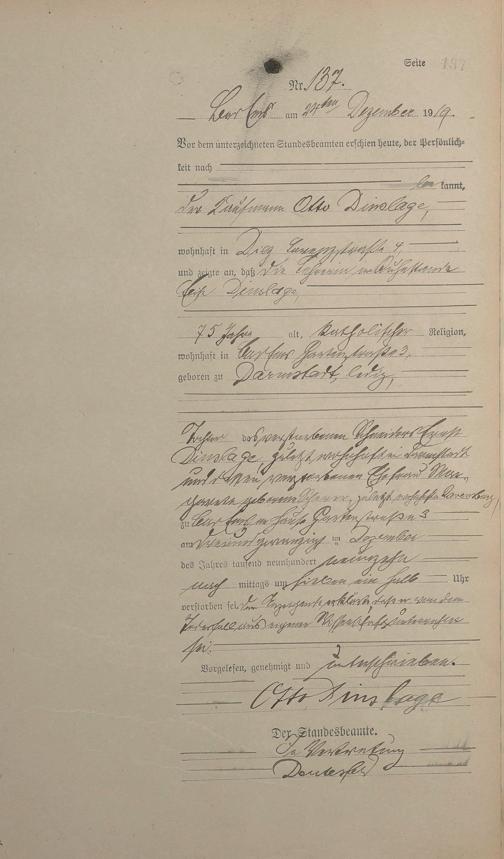 Seite 137
Nr. 137.
Bad Ems am 24ten Dezember 1919.
Vor dem unterzeichneten Standesbeamten erschien heute, der Persönlich-
keit nach
bekannt,
der Kaufmann Otto Dinslage,
wohnhaft in Diez 4,
und zeigte an, daß die Lehrerin im Ruhestande
Dinslage,
75 Jahre alt, katholischer Religion,
wohnhaft in Bad Ems Gartenstraße 3,
geboren zu Darmstadt, ledig,
Tochter des verstorbenen Schneiders Ernst
Dinslage, zuletzt wohnhaft in Darmstadt
und dessen verstorbenen Ehefrau Mar-
garete geborene zuletzt wohnhaft
zu Bad Ems im Hause Gartenstraße 3
am dreiundzwanzigsten Dezember
des Jahres tausend neunhundert neunzehn
nach mittags um sieben ein halb Uhr
verstorben sei. Der Anzeigende erklärte, daß er von dem
Todesfall aus eigener Wissenschaft unterrichtet
sei.
Vorgelesen, genehmigt und unterschrieben.
Otto Dinslage
Der Standesbeamte.
In Vertretung